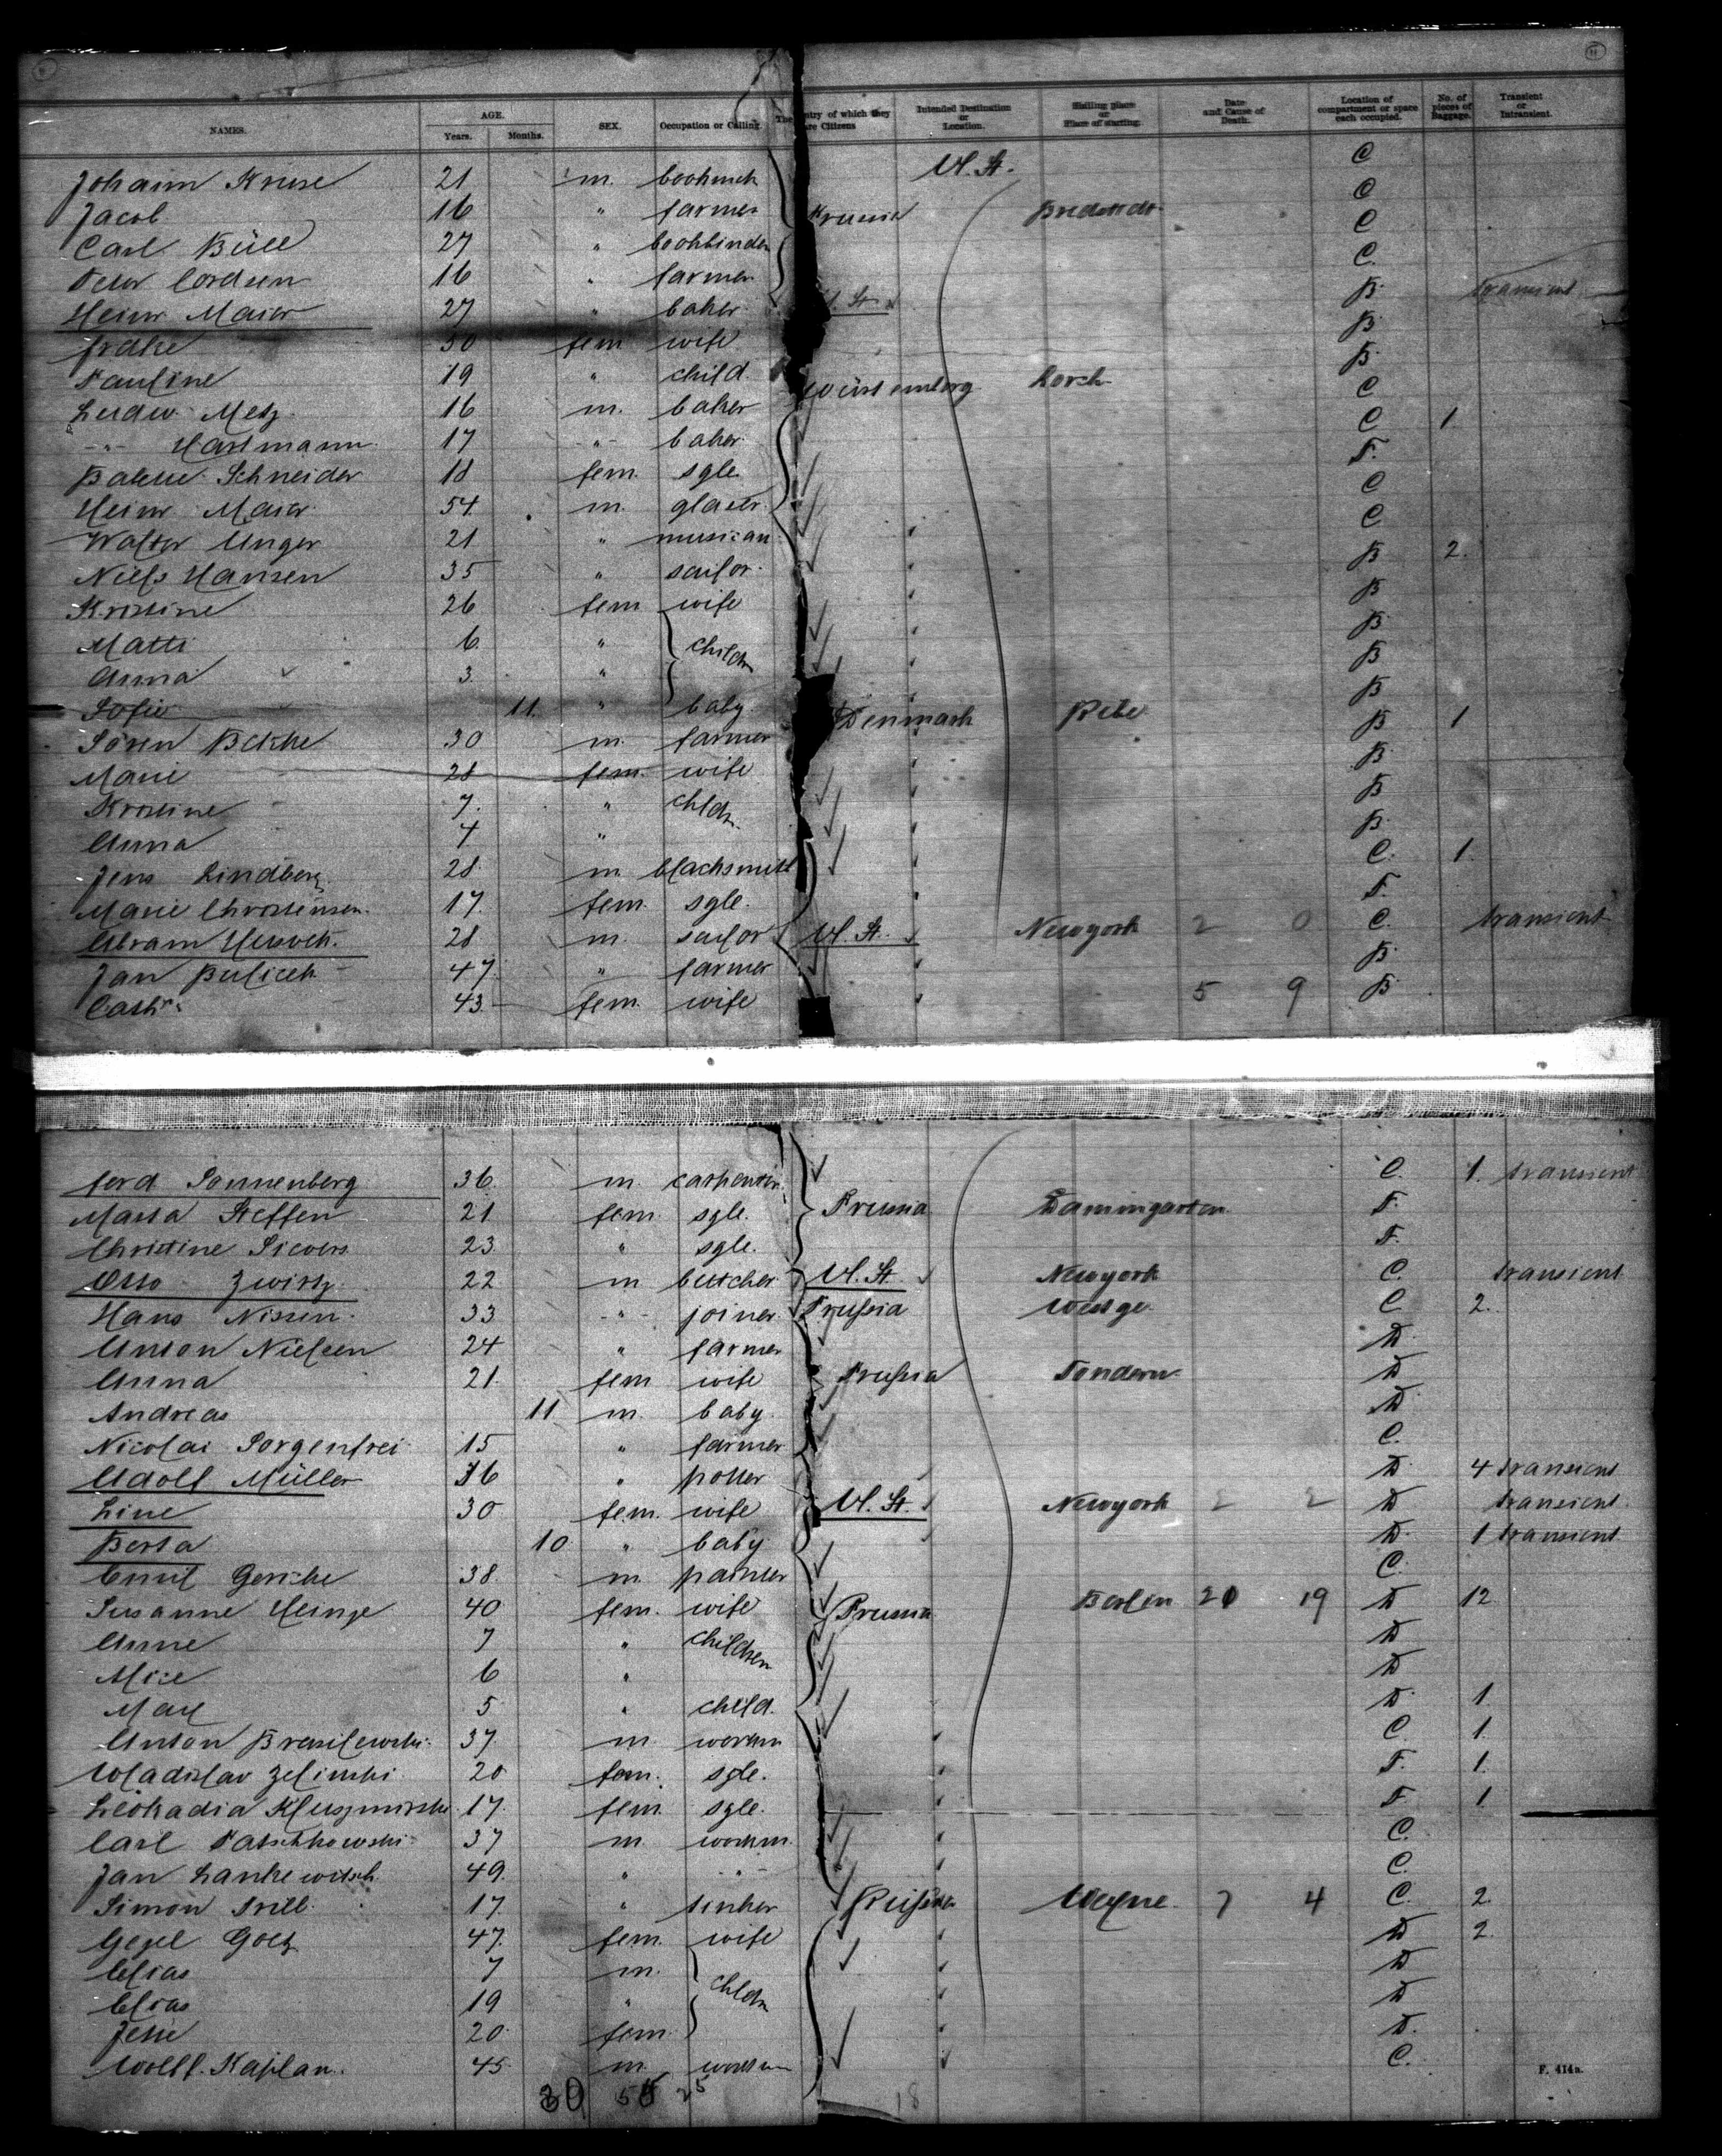 NAMES. AGE. Years. Months. SEX. Occupation or Calling. The Country of which they are Citizens Intended Destination or Location. Mailing place or Place of starting. Date and Cause of Death. Location of compartment or space each occupied. No. of pieces of Baggage. Transient or Intransient.
Johann Kruse 21 m. U. St. C
Jacob 16 " farmer Prussia Bredstedt C
Carl Büll 27 " bookbinder C
Peter Cordsen 16 " farmer C.
Heinr Maier 27 " baker U. St. B transient
30 fem wife B
Pauline 19 " child Würtemberg Lorch B
Ludw Metz 16 m. baker C
-"- Hartmann 17 -"- baker C 1
Babette Schneider 18 fem. sgle. F.
Heinr Maier 54 m. glaser C
Walter Unger 21 " musician C
Niels Hansen 35 " sailor B 2.
Kristine 26 fem wife B
Matti 6 " childr B
Anna 3 " B
Sofie 11. " baby Denmark Ribe B
Sören Bekke 30 m. farmer B 1
Marie 28 fem. wife B
Kristine 7. " chldr. B
Anna 4 " B
Jens Lindberg 28. m. blacksmith C. 1.
Marie Christensen 17. fem. sgle. F.
Abram 28 m. sailor U. St. Newyork 2 0 C. transient
Jan 47 " farmer B
Cath 43 fem. wife 5 9 B
ferd Sonnenberg 36 m. carpenter C. 1. transient
Marta Steffen 21 fem sgle. Prussia Dammgarten F.
Christine Sievers 23 " sgle. F.
Otto Zwirtz 22 m butcher U. St. Newyork C. transient
Hans Nissen 33 -"- joiner Prussia C 2.
Anton Nielsen 24 " farmer D
Anna 21. fem wife Prussia Tondern D
Andreas 11 m. baby D
Nicolai Sorgenfrei 15 " farmer C.
Adolf Müller 36 " potter D 4 transient
Line 30 fem. wife U. St. Newyork 2 2 D transient
Berta 10 " baby D 1 transient
Emil Gericke 38 m. painter C.
Susanne Heinze 40 fem. wife Prussia Berlin 20 19 D 12
Anne 7 " children D
6 " D
Max 5 " child. D 1
Anton 37. m. workm C. 1.
Wladislav Zelinski 20 fem. sgle. F. 1.
Leokadia 17. fem sgle. F 1
Carl Patschkowski 37 m. workm. C.
Jan Lankewitsch 49. " -"- C.
Simon 17. " tinker C. 2.
7 4
Goetz 47. fem. wife D 2.
Elias 7 m. chldr D
Elias 19 " D
Jette 20. fem. D.
Wolff. Kaplan. 45 m. workm C.
F. 414a.
18